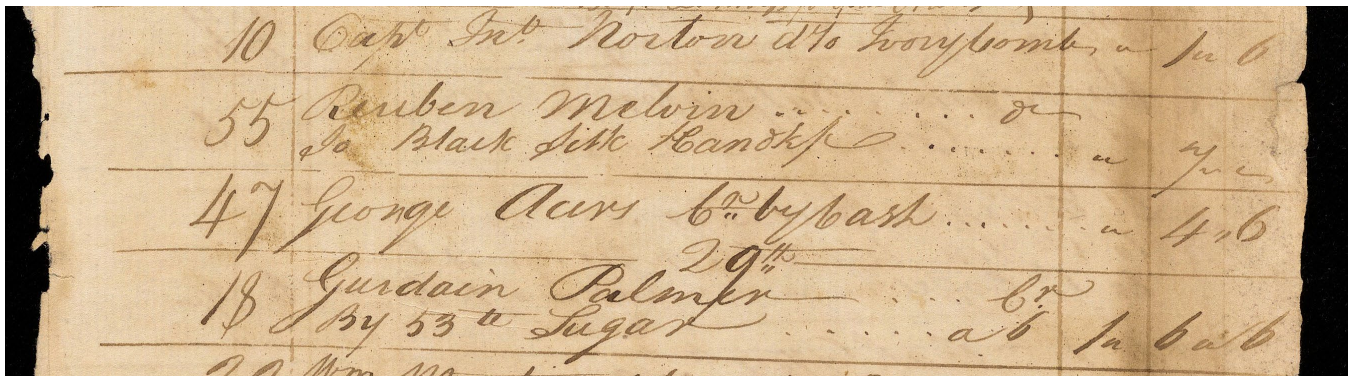 10 Capt Jno Norton Dto Ivory Comb " 1 " 6
55 Reuben Melvin . . . . . . . . . Dr
To Black Silk Handkf . . . . . . . "
47 George Acers Cr by Cash . . . . . . . " 4 " 6
29th
18 Gurdain Palmer . . . . Cr
By 53 lb Sugar . . . . . . a 6 1 " 6 " 6